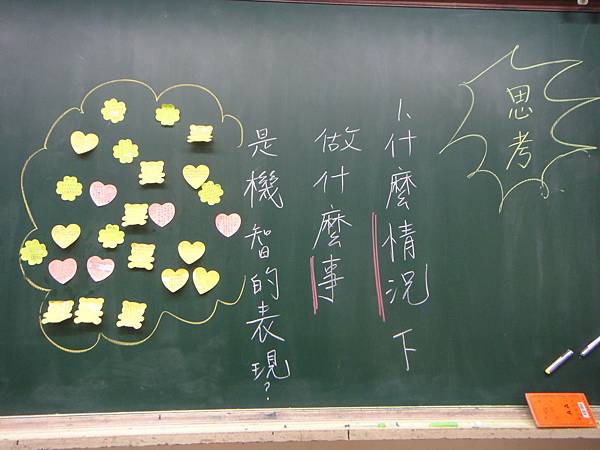 思考
1、什麼情況下
做什麼事
是機智的表現?